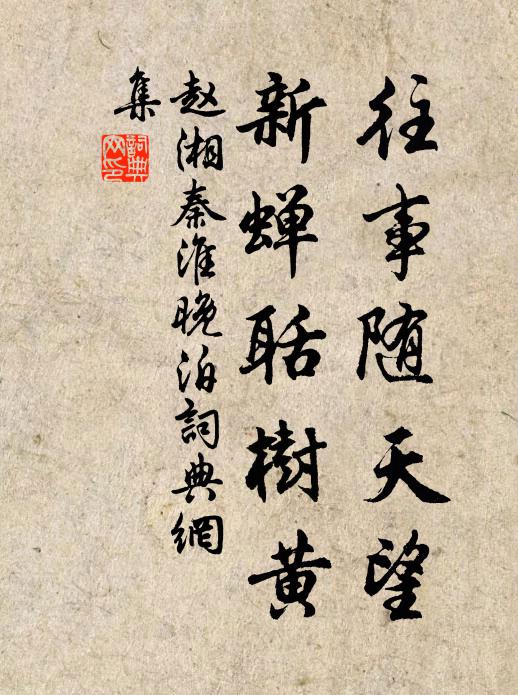 往事随天望
新蝉聒樹黄
赵湘秦淮晚泊詞典網
集
詞典
网印